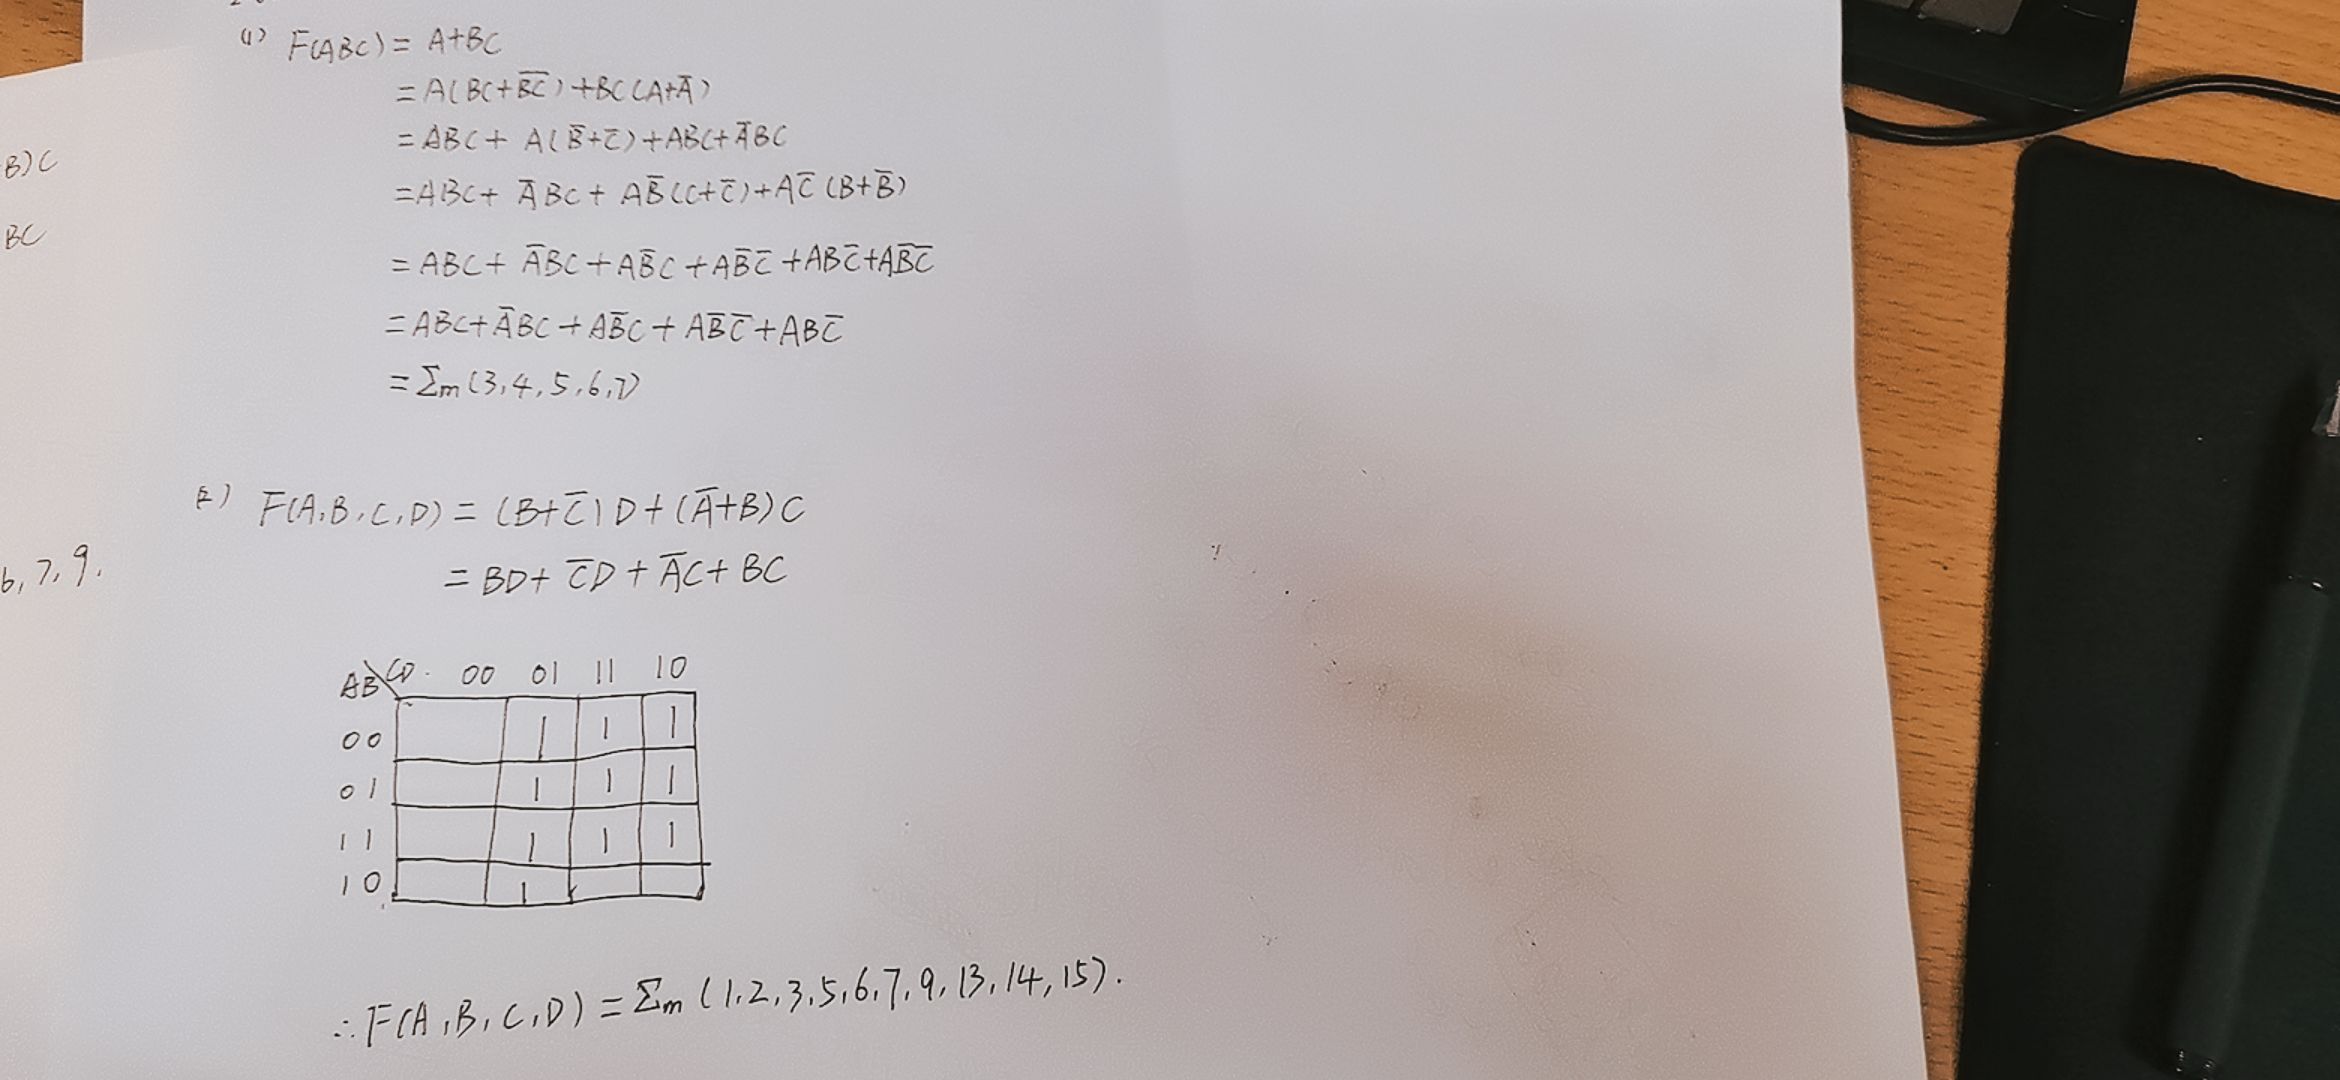 (1) F(ABC) = A+BC
= A(BC+\overline{BC}) + BC(A+\overline{A})
= ABC + A(\overline{B}+\overline{C}) + ABC + \overline{A}BC
= ABC + \overline{A}BC + A\overline{B}(C+\overline{C}) + A\overline{C}(B+\overline{B})
= ABC + \overline{A}BC + A\overline{B}C + A\overline{B}\overline{C} + AB\overline{C} + A\overline{B}\overline{C}
= ABC + \overline{A}BC + A\overline{B}C + A\overline{B}\overline{C} + AB\overline{C}
= Σm (3,4,5,6,7)
B)C
BC
6,7,9.
(2) F(A,B,C,D) = (B+\overline{C})D + (\overline{A}+B)C
= BD + \overline{C}D + \overline{A}C + BC
AB\CD 00 01 11 10
00 1 1 1
01 1 1 1
11 1 1 1
10 1
∴ F(A,B,C,D) = Σm (1,2,3,5,6,7,9,13,14,15).